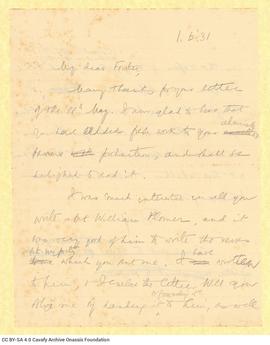 1.6.31
My dear Forster,
Many thanks for your letter
of the 11th May. I am glad to hear that
you have added fresh work to your already
famous with publication, and shall be
delighted to read it.
I was much interested in all you
write about William Plomer, and it
was very good of him to write the verses
which you sent me. I have written
to him, & I enclose the letter. Will you
oblige me by handing it to him, as well
CC BY-SA 4.0 Cavafy Archive Onassis Foundation